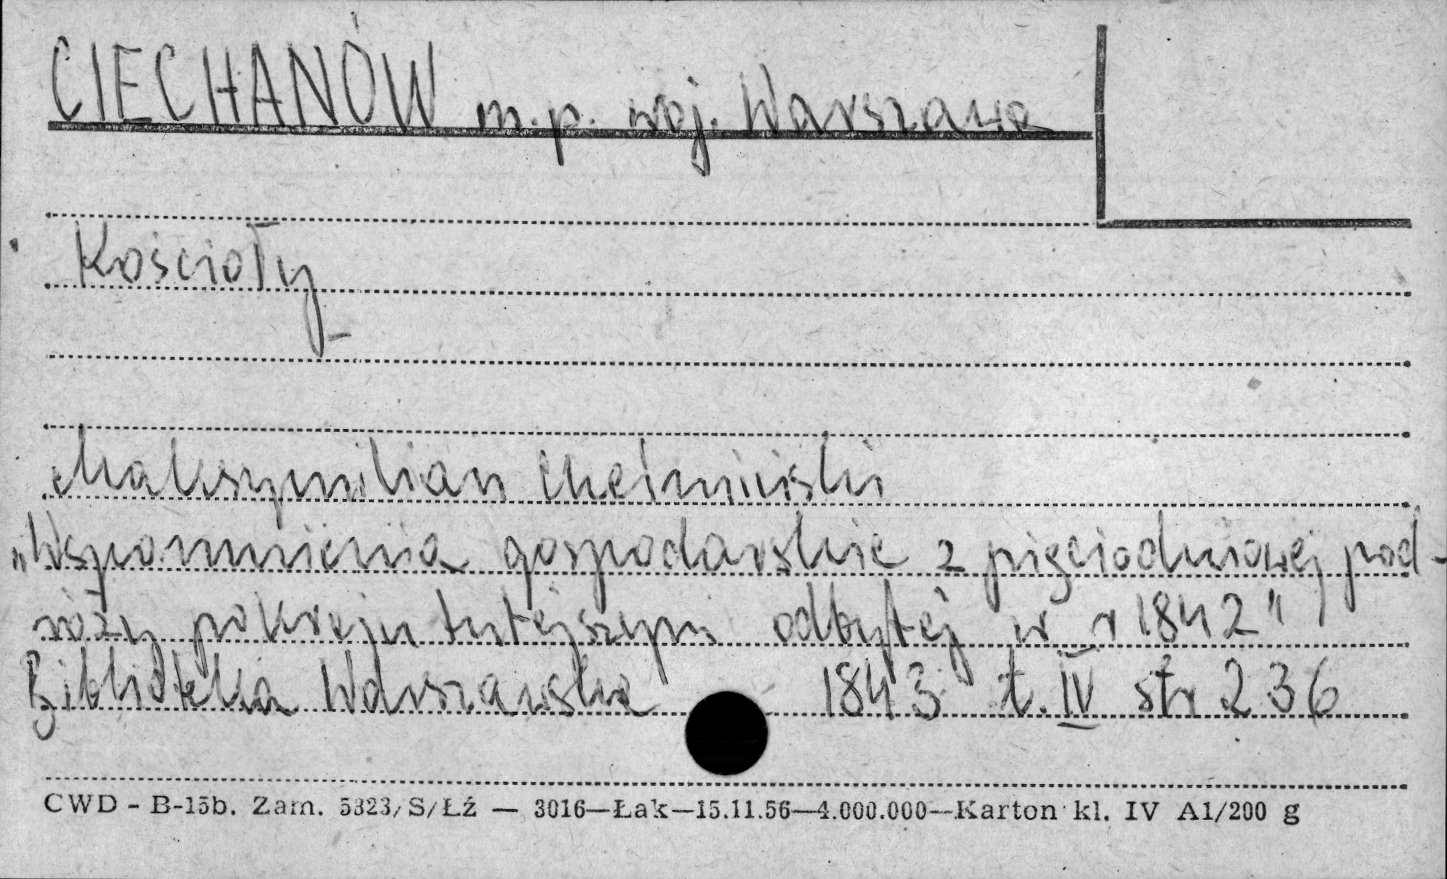 CIECHANÓW m.p. woj. Warszawa
Kościoły
Maksymilian Chełmiński
„Wspomnienia gospodarskie z pięciodniowej pod-
róży po kraju tutejszym odbytej w r 1842"
Biblioteka Warszawska 1843 t. IV str 236
CWD - B-15b. Zam. 5323/S/Łź — 3016—Łak—15.11.56—4.000.000—Karton kl. IV A1/200 g